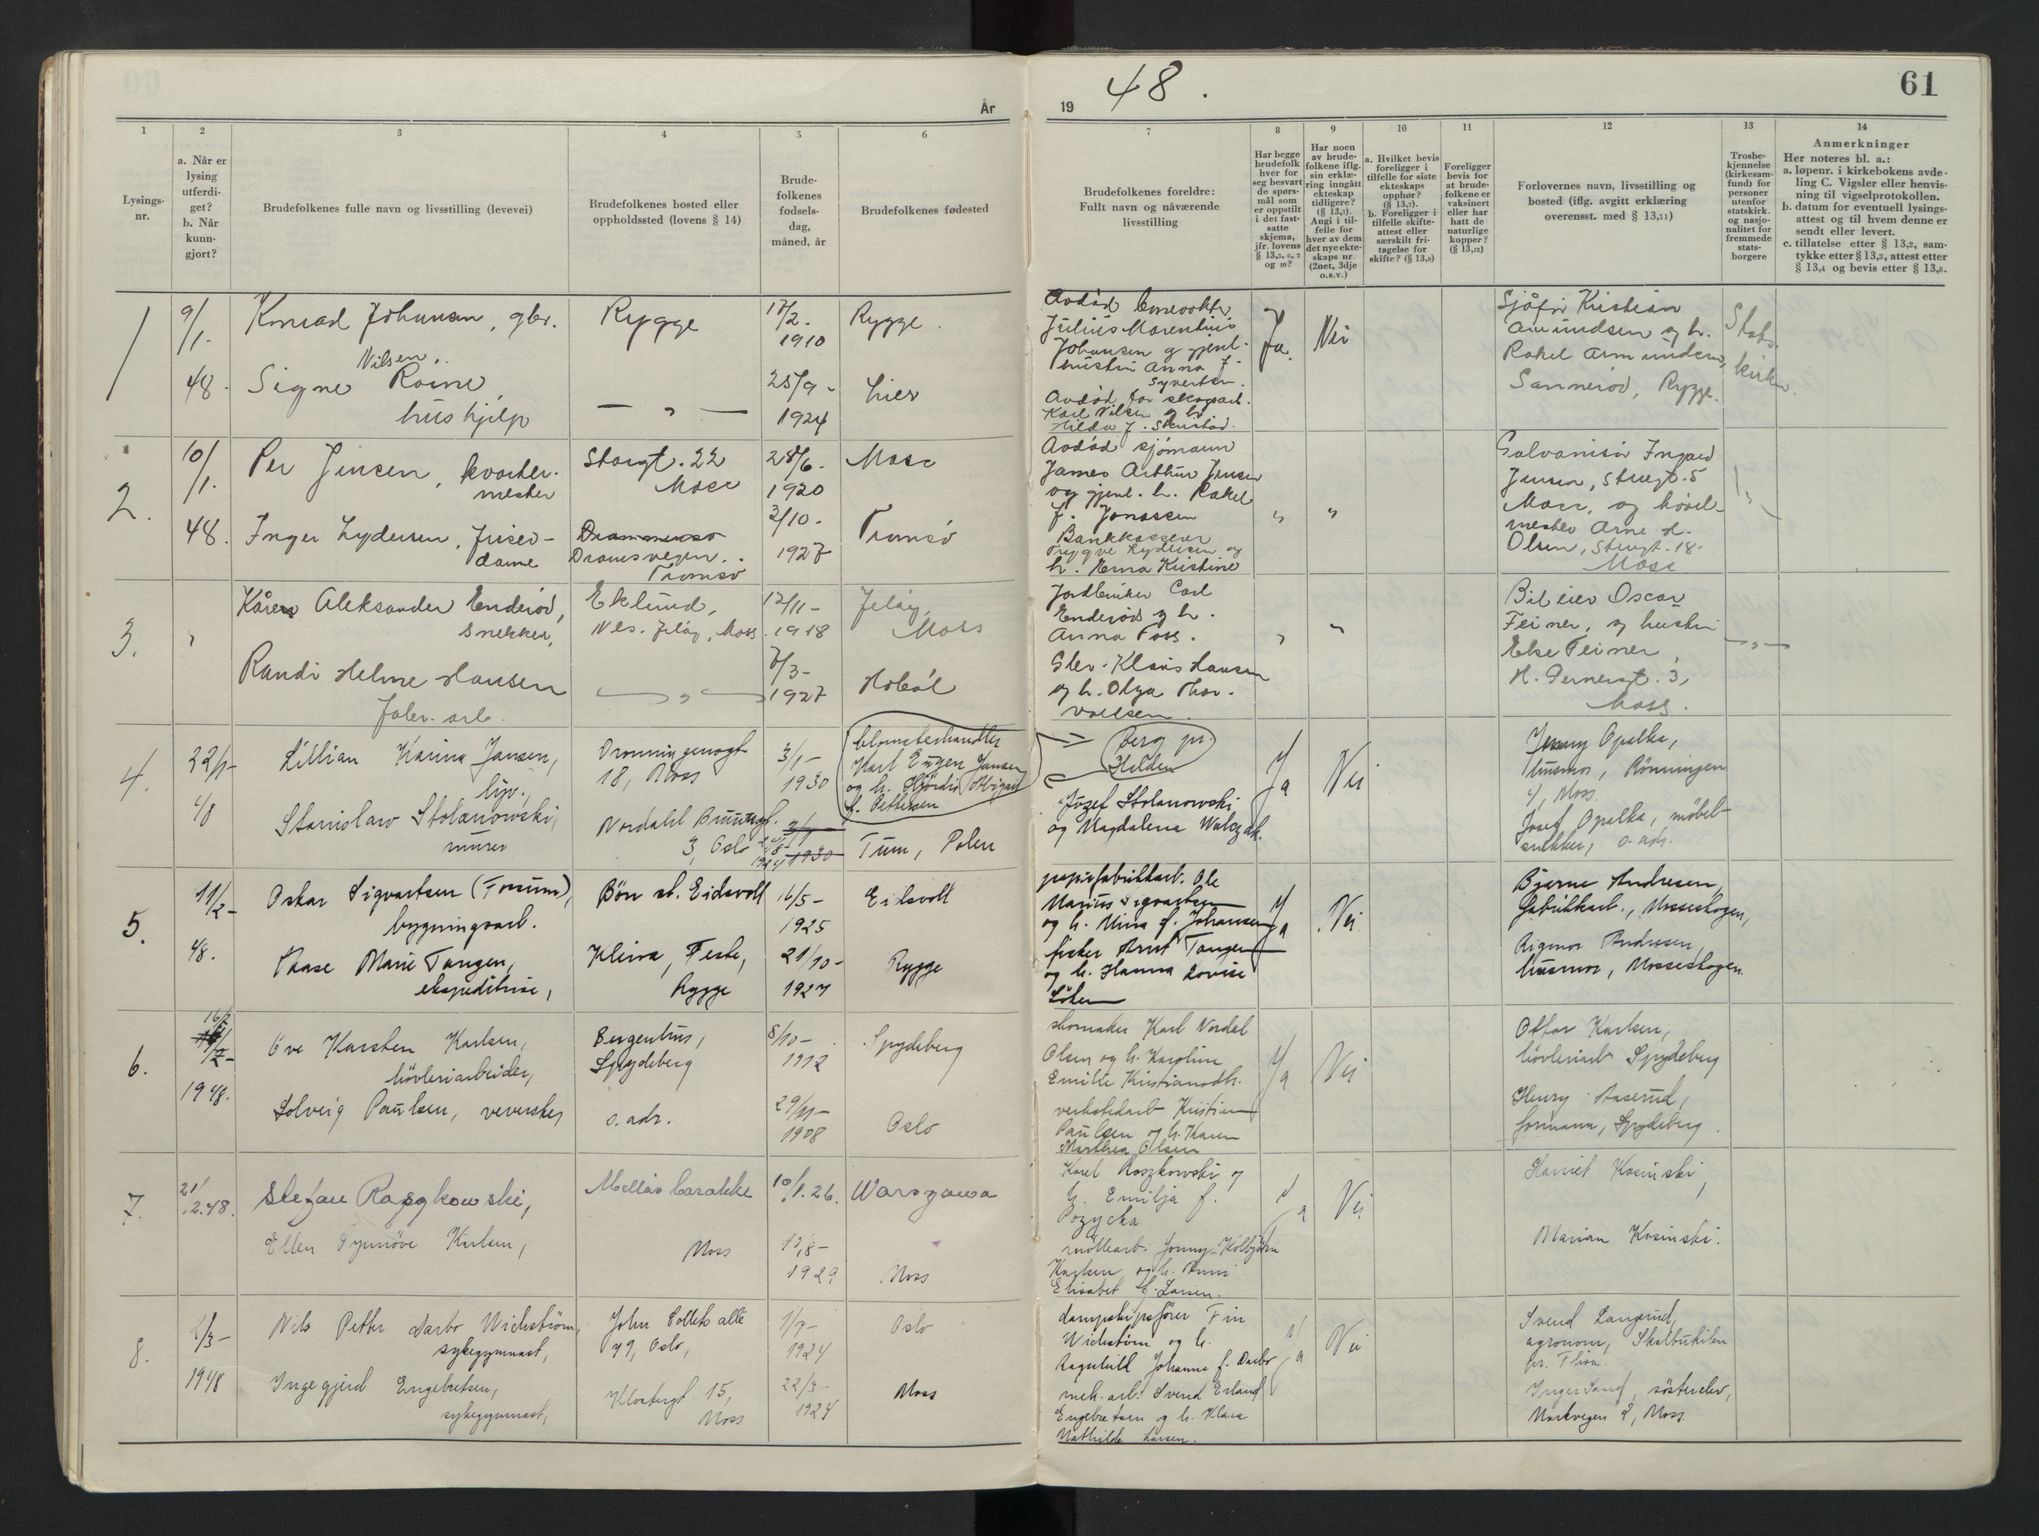 År
19 48.
61
1
2
3
4
5
6
7
8
9
10
11
12
13
14
Lysings-
nr.
a. Når er
lysing
utferdi-
get?
b. Når
kunn-
gjort?
Brudefolkenes fulle navn og livsstilling (levevei)
Brudefolkenes bosted eller
oppholdssted (lovens § 14)
Brude-
folkenes
fødsels-
dag,
måned, år
Brudefolkenes fødested
Brudefolkenes foreldre:
Fullt navn og nåværende
livsstilling
Har begge
brudefolk
hver for
seg besvart
de spørs-
mål som
er oppstilt
i det fast-
satte
skjema,
jfr. lovens
§ 13,5, 6, 7
og 10?
Har noen
av brude-
folkene iflg.
sin erklæ-
ring inngått
ekteskap
tidligere?
(§ 13,7).
Angi i til-
felle for
hver av dem
det nye ekte-
skaps nr.
(2net, 3dje
o.s.v.)
a. Hvilket bevis
foreligger i
tilfelle for siste
ekteskaps
opphør?
(§ 13,7)
b. Foreligger i
tilfelle skifte-
attest eller
særskilt fri-
tagelse for
skifte? (§ 13,9)
Foreligger
bevis for
at brude-
folkene er
vaksinert
eller har
hatt de
naturlige
kopper?
(§ 13,12)
Forlovernes navn, livsstilling og
bosted (iflg. avgitt erklæring
overensst. med § 13,11)
Trosbe-
kjennelse
(kirkesam-
fund) for
personer
utenfor
statskirk.
og nasjo-
nalitet for
fremmede
stats-
borgere
Anmerkninger
Her noteres bl. a.:
a. løpenr. i kirkebokens avde-
ling C. Vigsler eller henvis-
ning til vigselprotokollen.
b. datum for eventuell lysings-
attest og til hvem denne er
sendt eller levert.
c. tillatelse etter § 13,2, sam-
tykke etter § 13,3, attest etter
§ 13,4 og bevis etter § 13,8.
1
9/1-
48.
Konrad Johansen, gbr.
Nilsen.
Signe Roine,
hushjelp
Rygge
— " —
17/2.
1910
25/9-
1924
Rygge.
Lier
Avdød
Julius Marentius
Johansen og gjenl.
hustru Anna f.
Syvertsen.
Avdød
Karl Nilsen og h.
Hilda f.
Ja.
Nei
Sjåfør Kristian
Amundsen og h.
Rakel Amundsen,
Sannerød, Rygge.
Stats
kirken
2.
10/1.
48.
Per Jensen, kvarter-
mester
Inger Lydersen, frisør-
dame
Storgt. 22
Moss
Dramsvegen
Tromsø
28/6.
1920
3/10-
1927
Moss
Tromsø
Avdød sjømann
James Arthur Jensen
og gjenl. h. Rakel
f. Jonassen
Bankkasserer
Trygve Lydersen og
h. Erna Kristine
"
"
Galvanisør Ingard
Jensen, Storgt. 5
Moss, og høvel-
mester Arne H.
Olsen, Storgt. 18.
Moss
"
3.
"
Kåre Aleksander Enderød,
Snekker,
Randi Helene Hansen
Fabr. arb.
Eklund,
Nes. Jeløy, Moss.
— " —
12/11-
1918
7/3-
1927
Jeløy,
Moss
Hobøl
Jordbruker Carl
Enderød og h.
Anna Foss.
Gbr. Klaus Hansen
og h. Olga Thor-
valdsen.
"
"
Bileier Oscar
Feiner, og hustru
Else Feiner,
H. Gernersgt. 3,
Moss.
— " —
4.
22/1-
48
Lillian Karina Jansen,
Stanislaw Stolanowski,
murer
Dronningensgt
18, Moss
Nordahl Brunsgt.
3, Oslo
3/1-
1930
3/1
1930
24/8-
1924
blomsterhandler
Karl Eugen Jansen
og h. Hjördis Abigael
f. Pettersen
Tum, Polen
Berg pr
Halden
Józef Stolanowski
og Magdalena Walczak.
Ja
Nei
Jenny Opalka,
husmor, Rønningen
4, Moss.
Josef Opalka, møbel-
snekker, s. adr.
5.
11/2-
48.
Oskar Sigvartsen (Fossum),
bygningsarb.
Aase Marie Tangen,
ekspeditrise,
Bön st. Eidsvoll
Kleiva, Feste,
Rygge
16/5-
1925
21/10-
1927
Eidsvoll
Rygge
papirfabrikkarb. Ole
Marius Sigvartsen
og h. Mina f. Johansen
fisker Arnt Tangen
og h. Hanna Lovise
Ja
Nei
Bjarne Andresen,
fabrikkarb., Mosseskogen,
Rigmor Andresen,
husmor, Mosseskogen.
6.
16/2-
1948.
Ove Karsten Karlsen,
høvleriarbeider,
Solveig Paulsen, veverske,
Bergentun,
Spydeberg
s. adr.
8/10-
1912
29/11-
1908
Spydeberg
Oslo
skomaker Karl Nordal
Olsen og h. Karoline
Emilie Kristiansdtr.
verkstedarb Kristian
Paulsen og h. Karen
Marthea Olsen
Ja
Nei
Ottar Karlsen,
høvleriarb Spydeberg
Henry Aaserud,
formann, Spydeberg.
7.
21/
.2.48.
Stefan Raszkowski,
Ellen Synnöve Karlsen,
Melløs barakke
Moss
10/1.26.
1929
Warszawa
Moss
Karel Roszkowski og
h. Emilja f.
Pozycka
møllearb. Jonny Kolbjørn
Karlsen og h. Anni
Elisabet f. Larsen.
Ja
Nei
Harriet Kosinski,
Marian Kosinski.
8.
2/3-
1948
Nils Petter Darbo Wickstrøm,
sykegymnast,
Ingegjerd Engebretsen,
sykegymnast,
John Colletts alle
79, Oslo,
Klostergt 15,
Moss
1/7-
1924
22/3-
1924
Oslo
Moss
dampskipsfører Finn
Wickstrøm og h.
Ragnhild Johanne f. Darbo
mek. arb. Svend Erland
Engebretsen og h. Klara
Mathilde Larsen.
Ja
Nei
Svend Langrud,
agronom, Skalbukilen
pr. Flisa.
Inger Sand, søsterelev,
Markvegen 2, Moss.